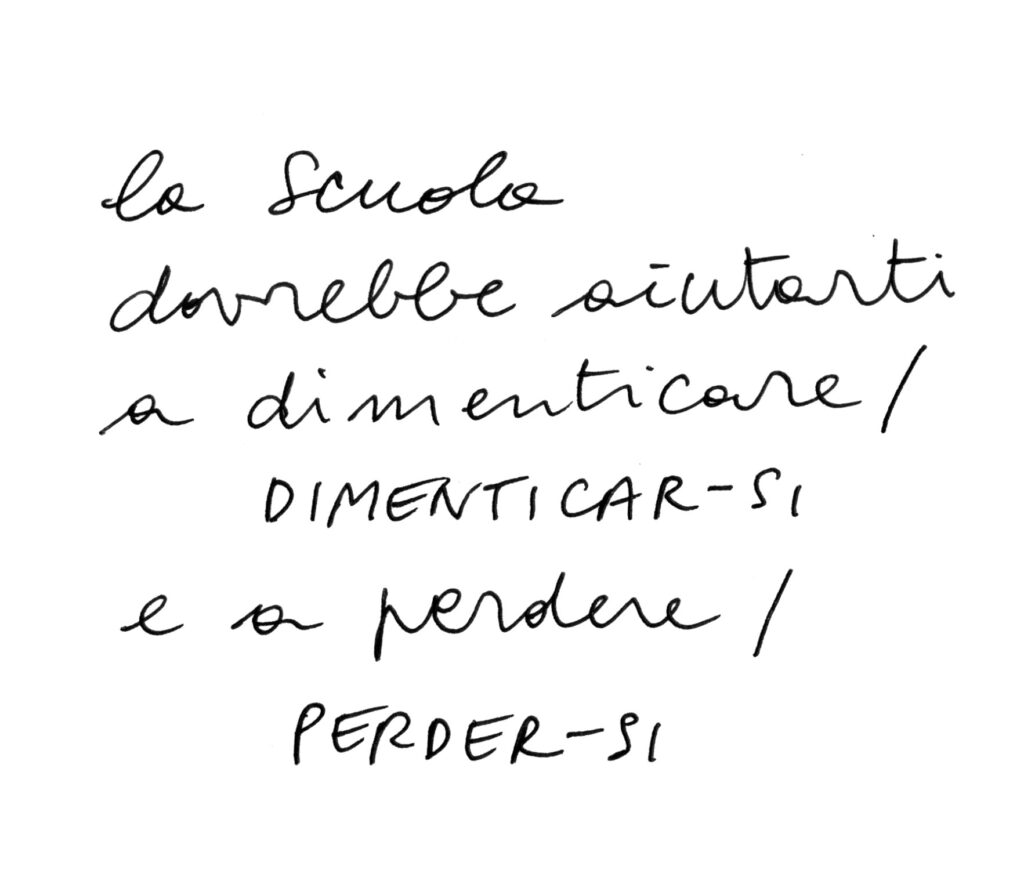 la Scuola
dovrebbe aiutarti
a dimenticare/
DIMENTICAR-SI
e a perdere/
PERDER-SI